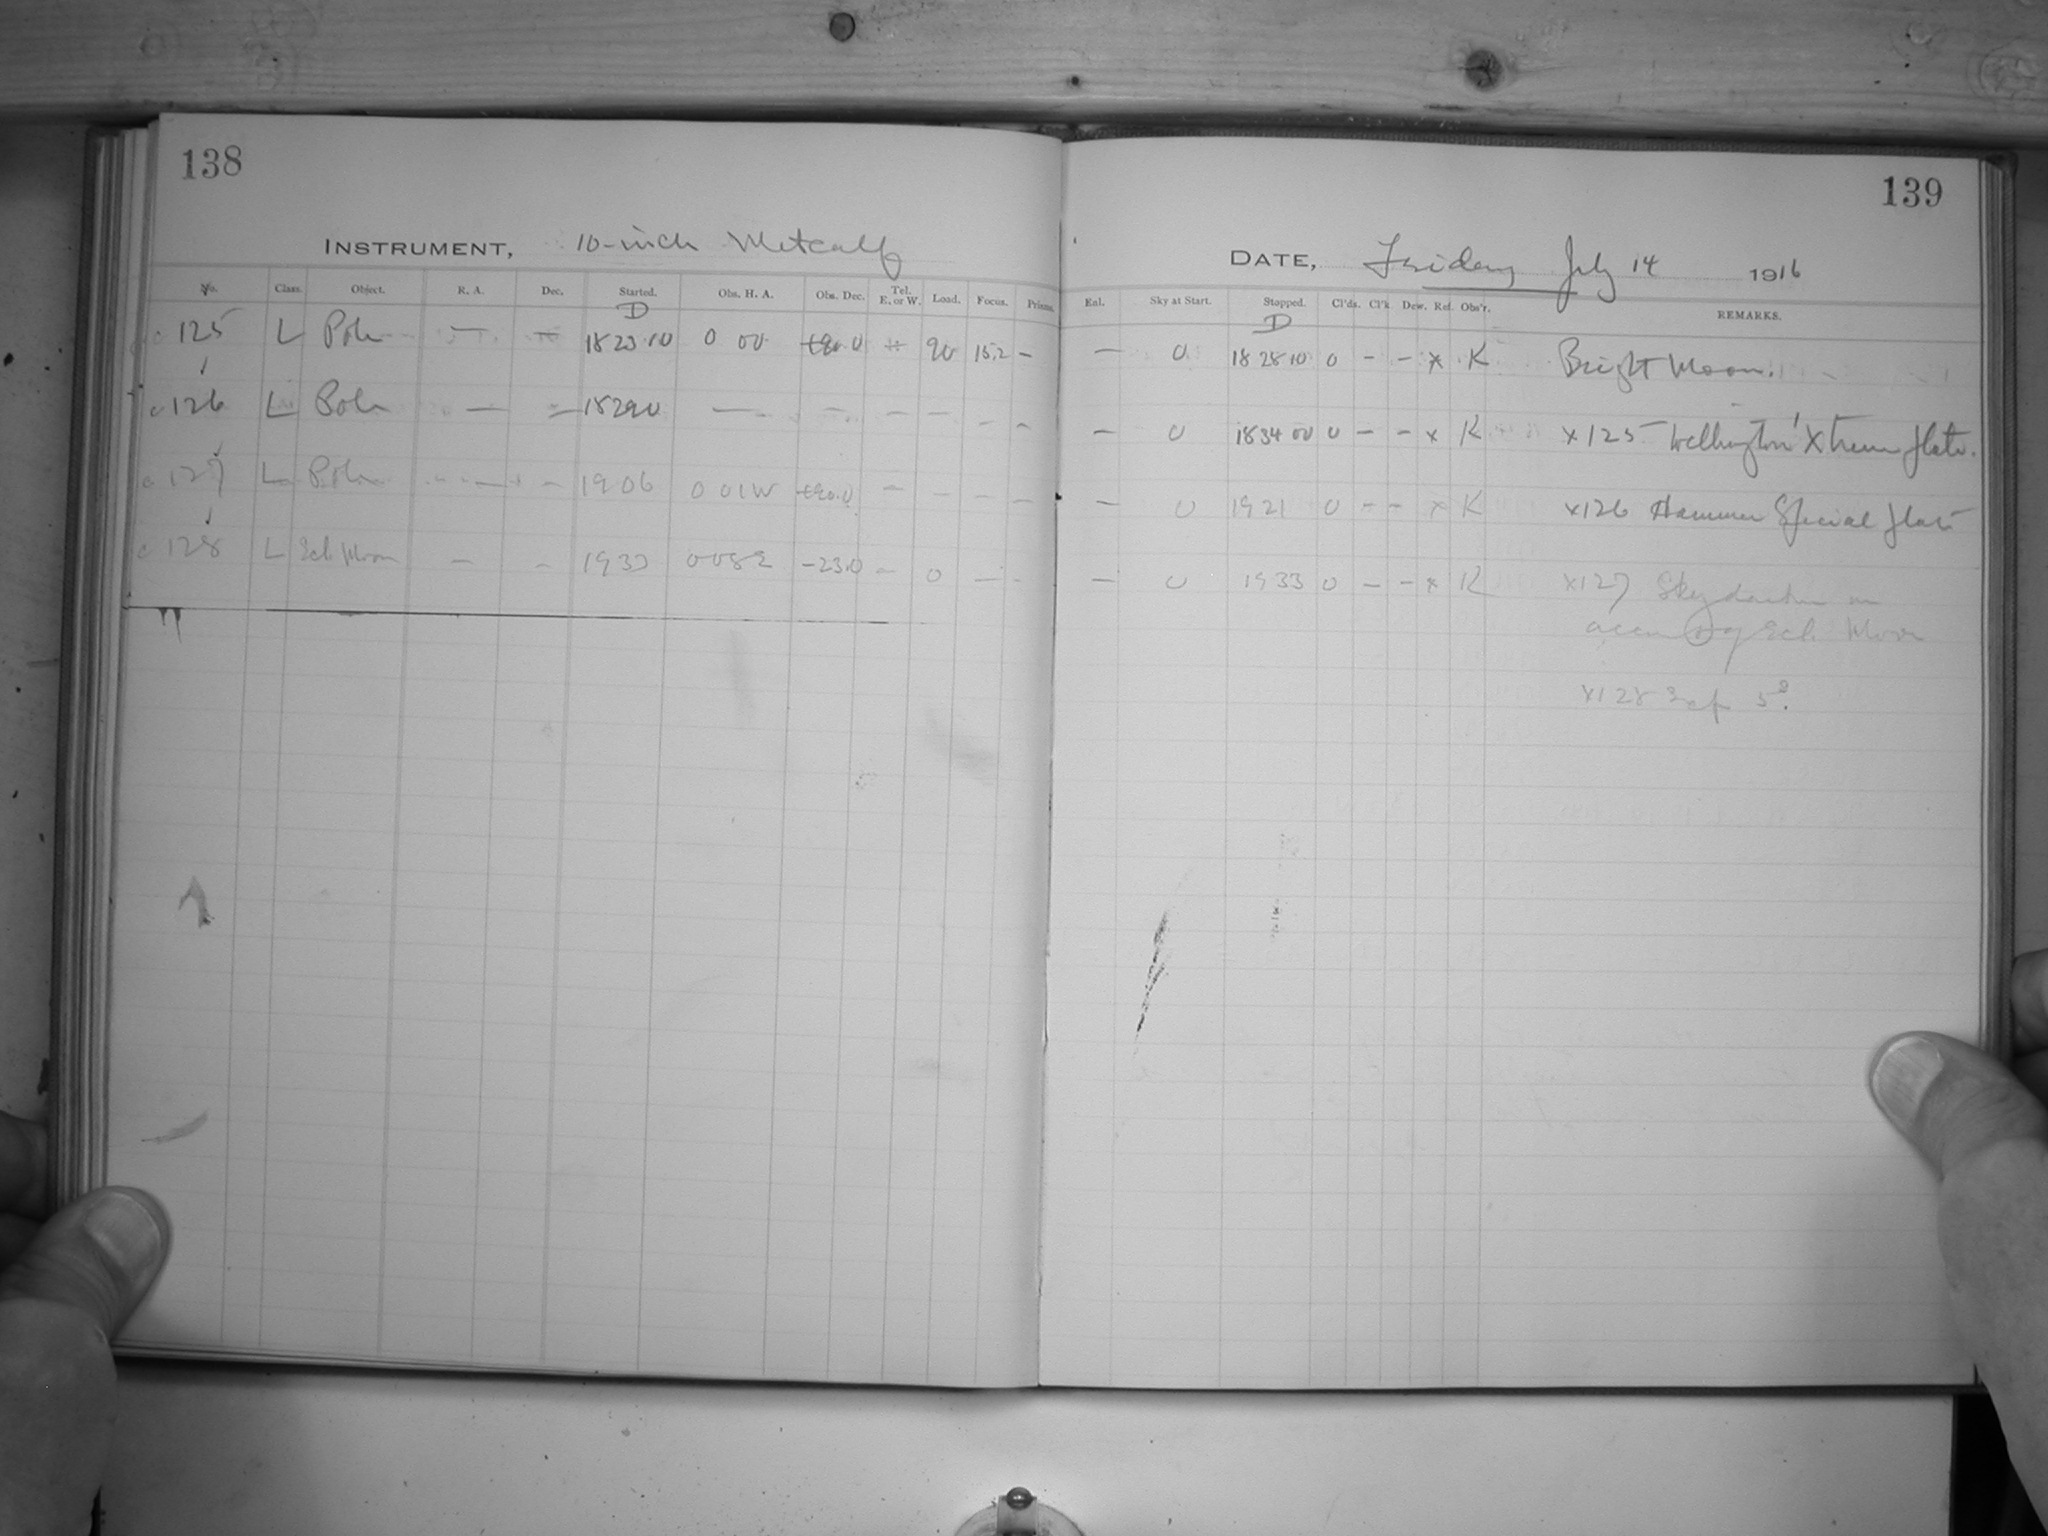 138
INSTRUMENT, 10-inch Metcalf
No. Class. Object. R. A. Dec. Started. Obs. H. A. Obs. Dec. Tel. E. or W. Load. Focus. Prisms.
D
125 L Pole — — 18 23 10 0 00 +90.0 — 90 15.2 —
126 L Pole — — 18 29 0 — — — — — —
127 L Pole — — 19 06 0 01W +90.0 — — — —
128 L Ecl. Moon — — 19 33 0 08 E -23.0 — 0 — —
139
DATE, Friday July 14 1916
Enl. Sky at Start. Stopped. Cl'ds. Cl'k Dew. Ref. Obs'r. REMARKS.
D
— 0 18 28 10 0 — — x K Bright Moon.
— 0 18 34 00 0 — — x K x125 Wellington Xtreme plate.
— 0 19 21 0 — — x K x126 Hammer Special plate
— 0 19 33 0 — — x K x127 Sky darker on
account of Ecl. Moon
x128 3 exp 5s.